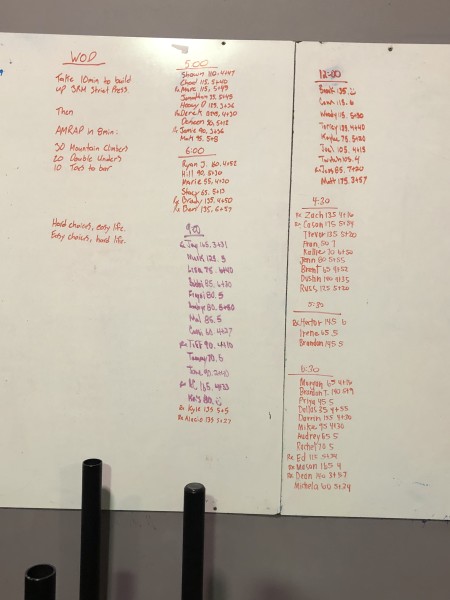 WOD
Take 10min to build
up 3RM Strict Press
Then
AMRAP in 8min:
30 Mountain Climbers
20 Double Unders
10 Toes to bar
Hard choices, easy life.
Easy choices, hard life.
5:00
Shawn 160. 4+47
Chad 115. 5+45
Rx Marc 115. 5+45
Jonathan 75. 5+45
Henry D 135. 3+36
Rx Derrick 4+30
90. 5+18
Rx Jamie 90. 3+36
Matt 95. 5+8
6:00
Ryan J. 160. 4+52
Hill 90. 5+30
Marie 65. 4+30
Stacy 65. 5+13
Brady 135. 4+50
Rx Dan 135. 6+57
9:00
Jay 165. 3+31
Mark 125. 5
Lisa 75. 6+40
85. 6+30
80. 5
Mal 85. 5
60. 4+27
Rx Tiff 90. 4+10
Tammy 70. 5
165. 4+33
80.
Rx Kyle 135 5+5
Rx Alecia 135 5+27
12:00
Brook 135.
115. 6
Woody 115. 5+30
135. 4+40
Kayla 75. 5+20
Joel 105. 4+15
105. 4
Rx Jess 85. 7+20
Matt 175. 3+57
4:30
Rx Zach 135 4+16
Rx Cason 175 5+24
Trevor 135 5+30
Fran 50 7
Kallie 70 6+50
Jenn 80 5+55
Brent 65 4+52
Dustin 100 4+35
Russ 125 5+20
5:30
Rx Hector 145 6
Irene 65 5
Brandon 145 5
6:30
Morgan 65 4+30
Brandon T. 140 5+9
Priya 45 5
Dallas 85 4+55
Darren 155 4+30
Mike 95 4+30
Audrey 65 5
Rachel 70 5
Rx Ed 115 5+34
Rx Mason 165 4
Rx Dean 140 3+57
Michela 60 5+24